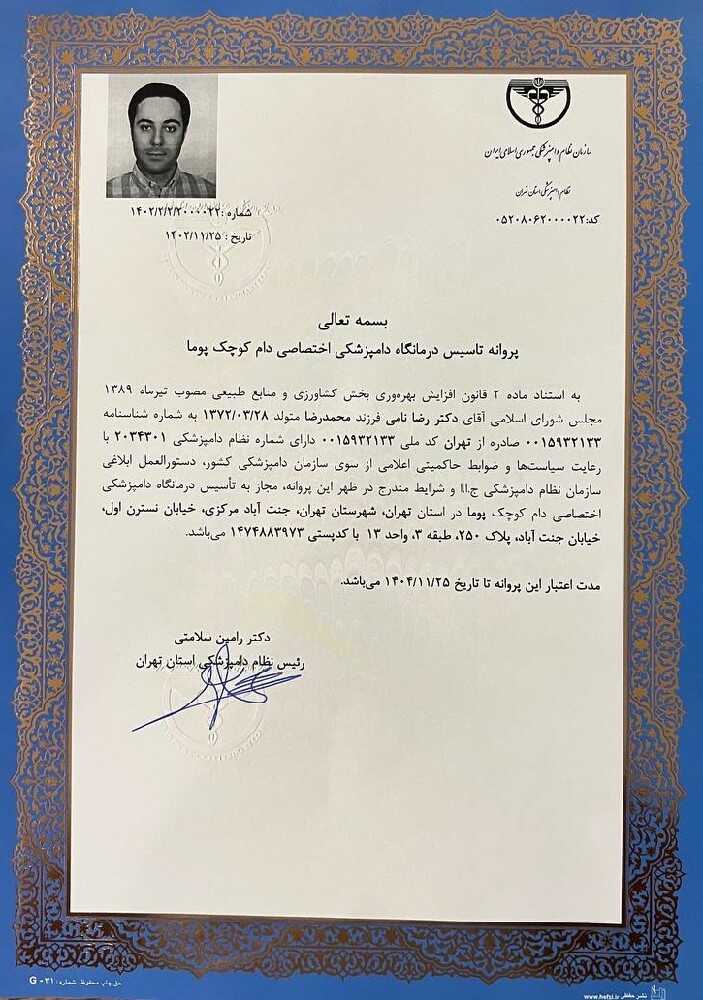 سازمان نظام دامپزشکی جمهوری اسلامی ایران
نظام دامپزشکی استان تهران
کد:۰۵۲۰۸۰۶۲۰۰۰۰۲۲
شماره :۱۴۰۲/۲/۲/۲۰۰۰۰۲۲
تاریخ : ۱۴۰۲/۱۱/۲۵
بسمه تعالی
پروانه تاسیس درمانگاه دامپزشکی اختصاصی دام کوچک پوما
به استناد ماده ۲ قانون افزایش بهره‌وری بخش کشاورزی و منابع طبیعی مصوب تیرماه ۱۳۸۹
مجلس شورای اسلامی آقای دکتر رضا نامی فرزند محمدرضا متولد ۱۳۷۲/۰۳/۲۸ به شماره شناسنامه
۰۰۱۵۹۳۲۱۲۳ صادره از تهران کد ملی ۰۰۱۵۹۳۲۱۳۳ دارای شماره نظام دامپزشکی ۲۰۳۴۳۰۱ با
رعایت سیاست‌ها و ضوابط حاکمیتی اعلامی از سوی سازمان دامپزشکی کشور، دستورالعمل ابلاغی
سازمان نظام دامپزشکی ج.ا.ا و شرایط مندرج در ظهر این پروانه، مجاز به تأسیس درمانگاه دامپزشکی
اختصاصی دام کوچک پوما در استان تهران، شهرستان تهران، جنت آباد مرکزی، خیابان نسترن اول،
خیابان جنت آباد، پلاک ۲۵۰، طبقه ۳، واحد ۱۳ با کدپستی ۱۴۷۴۸۸۳۹۷۳ می‌باشد.
مدت اعتبار این پروانه تا تاریخ ۱۴۰۴/۱۱/۲۵ می‌باشد.
دکتر رامین سلامتی
رئیس نظام دامپزشکی استان تهران
حق چاپ محفوظ شماره: G - ۲۱
نشر حفظی www.hefzi.ir